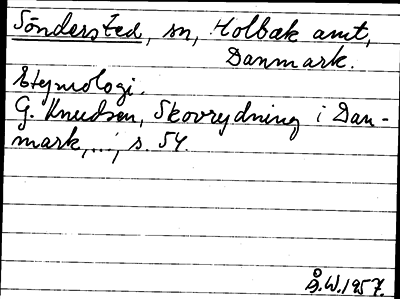 Söndersted, sn, Holbæk amt,
Danmark.
Etymologi.
G. Knudsen, Skovrydning i Dan-
mark,..., s. 54.
Å.W.1957.